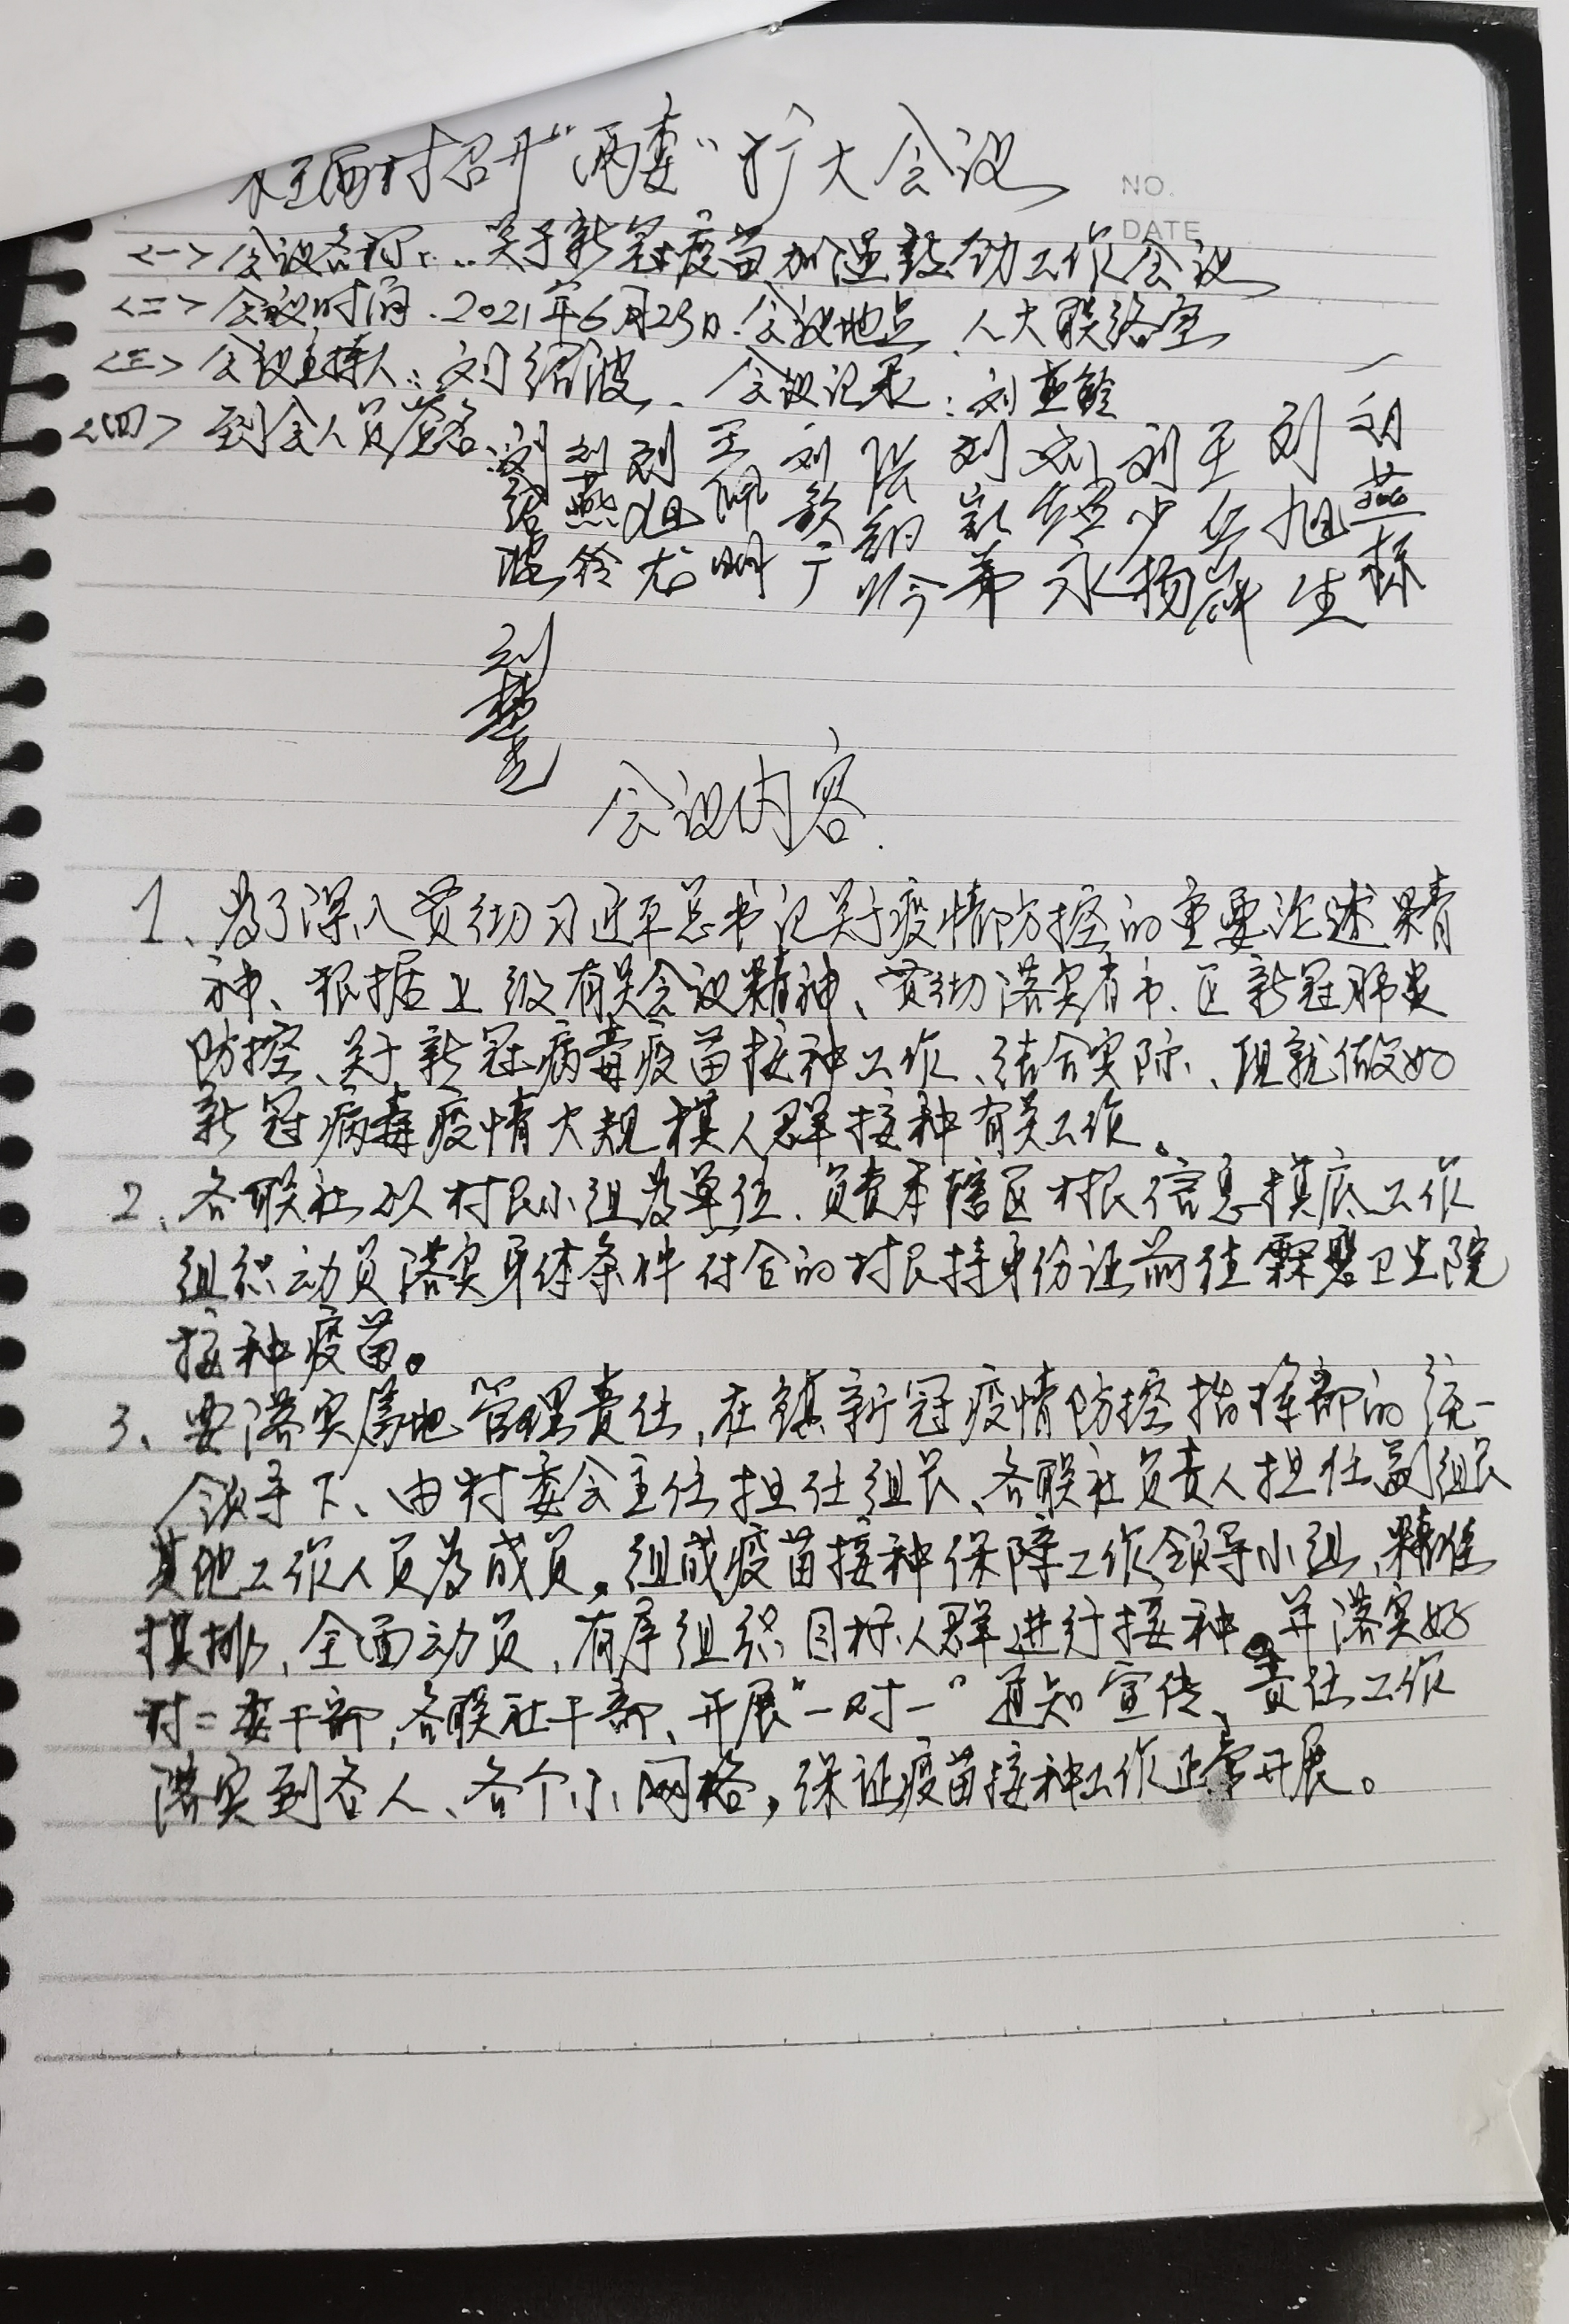 召开“两委”扩大会议
NO.
DATE
<一>会议名称:..关于新冠疫苗加强 工作会议
<二>会议时间.2021年6月23日.会议地点、人大联络室
<三>会议主持人:刘绍波、会议记录:刘燕铃
<四>到会人员签名:刘绍波 刘燕铃 刘 王佩明 刘 张 刘 刘 永 刘少扬 王 刘旭生 刘燕标
刘
会议内容.
1、为了深入贯彻习近平总书记关于疫情防控的重要论述精
神、根据上级有关会议精神、贯彻落实省市、区新冠肺炎
防控、关于新冠病毒疫苗接种工作、结合实际、现就做好
新冠病毒疫情大规模人群接种有关工作。
2、各联社以村民小组为单位、负责本辖区村民信息摸底工作
组织动员落实身体条件符合的村民持身份证前往霖磐卫生院
接种疫苗。
3、要落实属地管理责任,在镇新冠疫情防控指挥部的统一
领导下、由村委会主任担任组长、各联社负责人担任副组长
其他工作人员为成员,组成疫苗接种保障工作领导小组、精准
摸排、全面动员、有序组织目标人群进行接种。并落实好
村二委干部,各联社干部、开展“一对一”通知宣传、责任工作
落实到各人、各个小网格,保证疫苗接种工作正常开展。